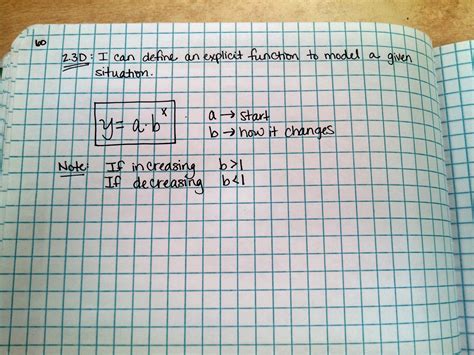 60
2.3D: I can define an explicit function to model a given
situation.
y = a · b^x
a → start
b → how it changes
Note: If increasing b>1
If decreasing b<1